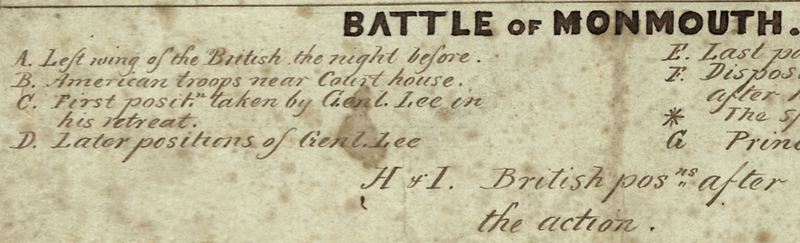 BATTLE OF MONMOUTH.
A. Left wing of the British the night before.
B. American troops near Court house.
C. First posit.n taken by Genl. Lee in
his retreat.
D. Later positions of Genl. Lee
E. Last
F.
after
* The
G
H & I. British pos.ns after
the action.